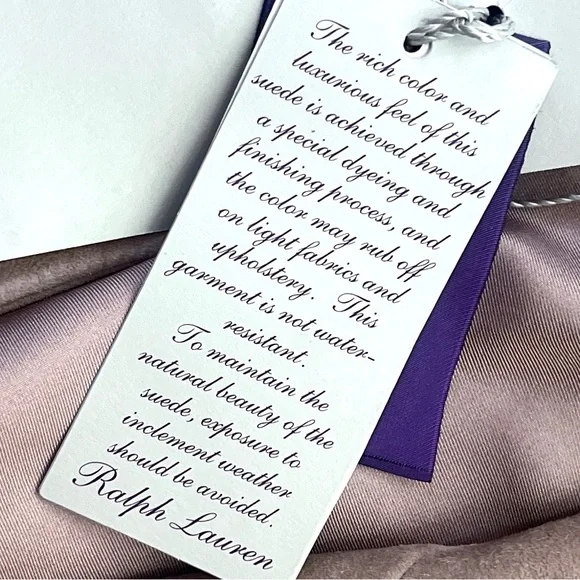 The rich color and
luxurious feel of this
suede is achieved through
a special dyeing and
finishing process, and
the color may rub off
on light fabrics and
upholstery. This
garment is not water-
resistant.
To maintain the
natural beauty of the
suede, exposure to
inclement weather
should be avoided.
Ralph Lauren